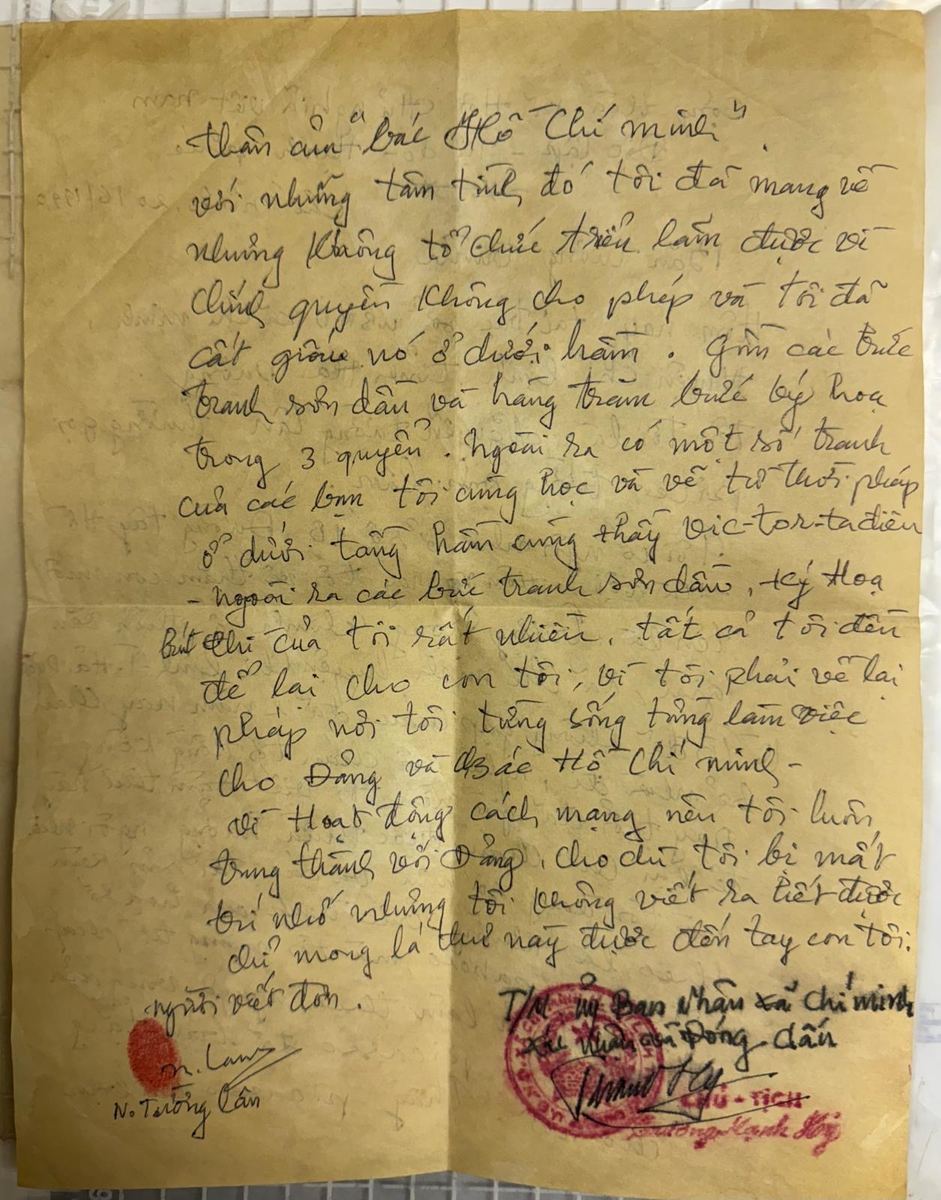 thân của "bác Hồ Chí minh".
với những tâm tình đó tôi đã mang về
nhưng không tổ chức triển lãm được vì
chính quyền không cho phép và tôi đã
cất giấu nó ở dưới hầm. gồm các bức
tranh sơn dầu và hàng trăm bức ký hoạ
trong 3 quyển. ngoài ra có một số tranh
của các bạn tôi cùng học và vẽ từ thời pháp
ở dưới tầng hầm cùng thầy vic-tor-tadiêu
- ngoài ra các bức tranh sơn dầu, ký Hoạ
bút chì của tôi rất nhiều, tất cả tôi đều
để lại cho con tôi, vì tôi phải về lại
pháp nơi tôi từng sống từng làm việc
cho Đảng và Bác Hồ Chí minh -
vì Hoạt động cách mạng nên tôi luôn
trung thành với Đảng, cho dù tôi bị mất
trí nhớ nhưng tôi không viết ra tiết được
chỉ mong lá thư này được đến tay con tôi.
người viết đơn.
T/M ủy Ban nhân xã Chí minh
xác nhận và Đóng dấu
m. Lan
N. Tường Lân
CHỦ - TỊCH